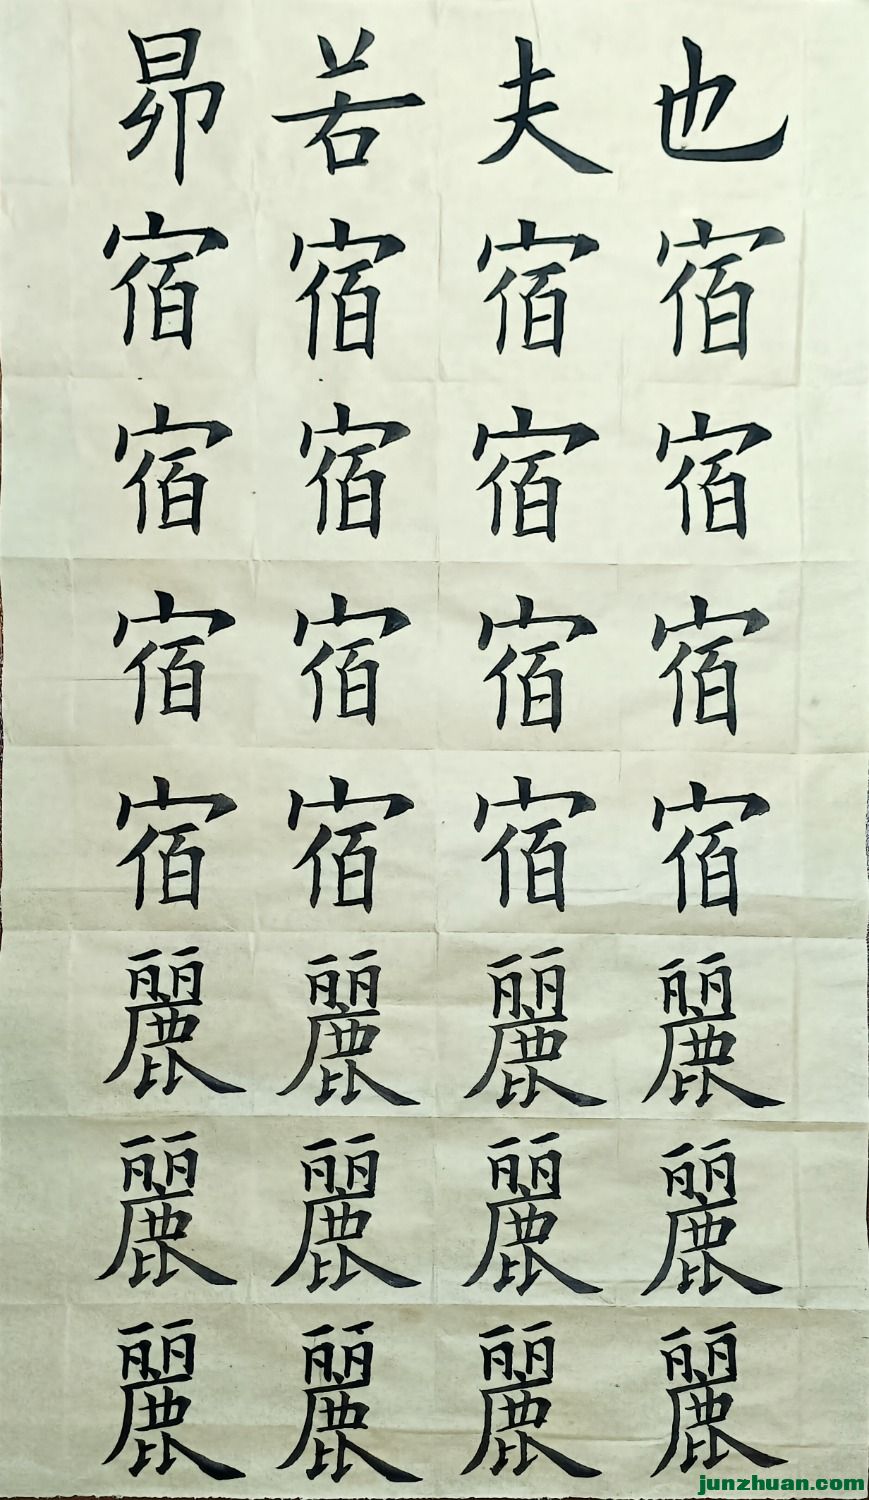 也夫若昴
宿宿宿宿
宿宿宿宿
宿宿宿宿
宿宿宿宿
麗麗麗麗
麗麗麗麗
麗麗麗麗
junzhuan.com